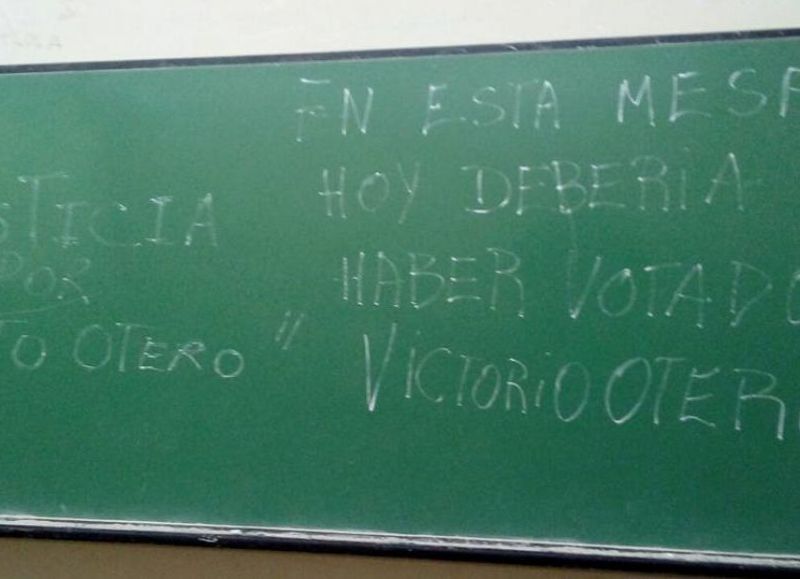 STICIA
POR
TO OTERO "
EN ESTA MESA
HOY DEBERIA
HABER VOTADO
VICTORIO OTER